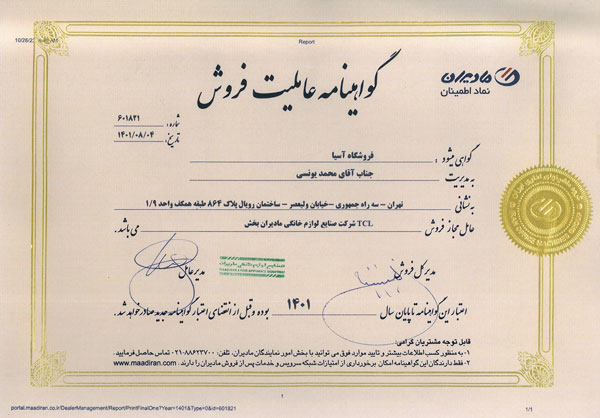 10/26/22, 
Report
مادیران
نماد اطمینان
گواهینامه عاملیت فروش
شماره: ۶۰۱۸۲۱
تاریخ: ۱۴۰۱/۰۸/۰۴
گواهی میشود: فروشگاه آسیا
به مدیریت جناب آقای محمد یونسی
به نشانی تهران - سه راه جمهوری -خیابان ولیعصر - ساختمان رویال پلاک ۸۶۴ طبقه همکف واحد ۱/۹
عامل مجاز فروش TCL شرکت صنایع لوازم خانگی مادیران بخش می باشد.
مدیر کل فروش
مدیر عامل
اعتبار این گواهینامه تا پایان سال ۱۴۰۱ بوده و قبل از انقضای اعتبار گواهینامه جدید صادر خواهد شد.
قابل توجه مشتریان گرامی:
۱- به منظور کسب اطلاعات بیشتر و تایید موارد فوق می توانید با بخش امور نمایندگان مادیران، تلفن: ۸۸۶۲۳۷۰۰-۰۲۱ تماس حاصل فرمایید.
۲- فقط دارندگان این گواهینامه امکان برخورداری از امتیازات شبکه سرویس و خدمات پس از فروش مادیران را دارند. www.maadiran.com
1
portal.maadiran.co.ir/DealerManagement/Report/PrintFinalOne?Year=1401&Type=0&id=601821
1/1